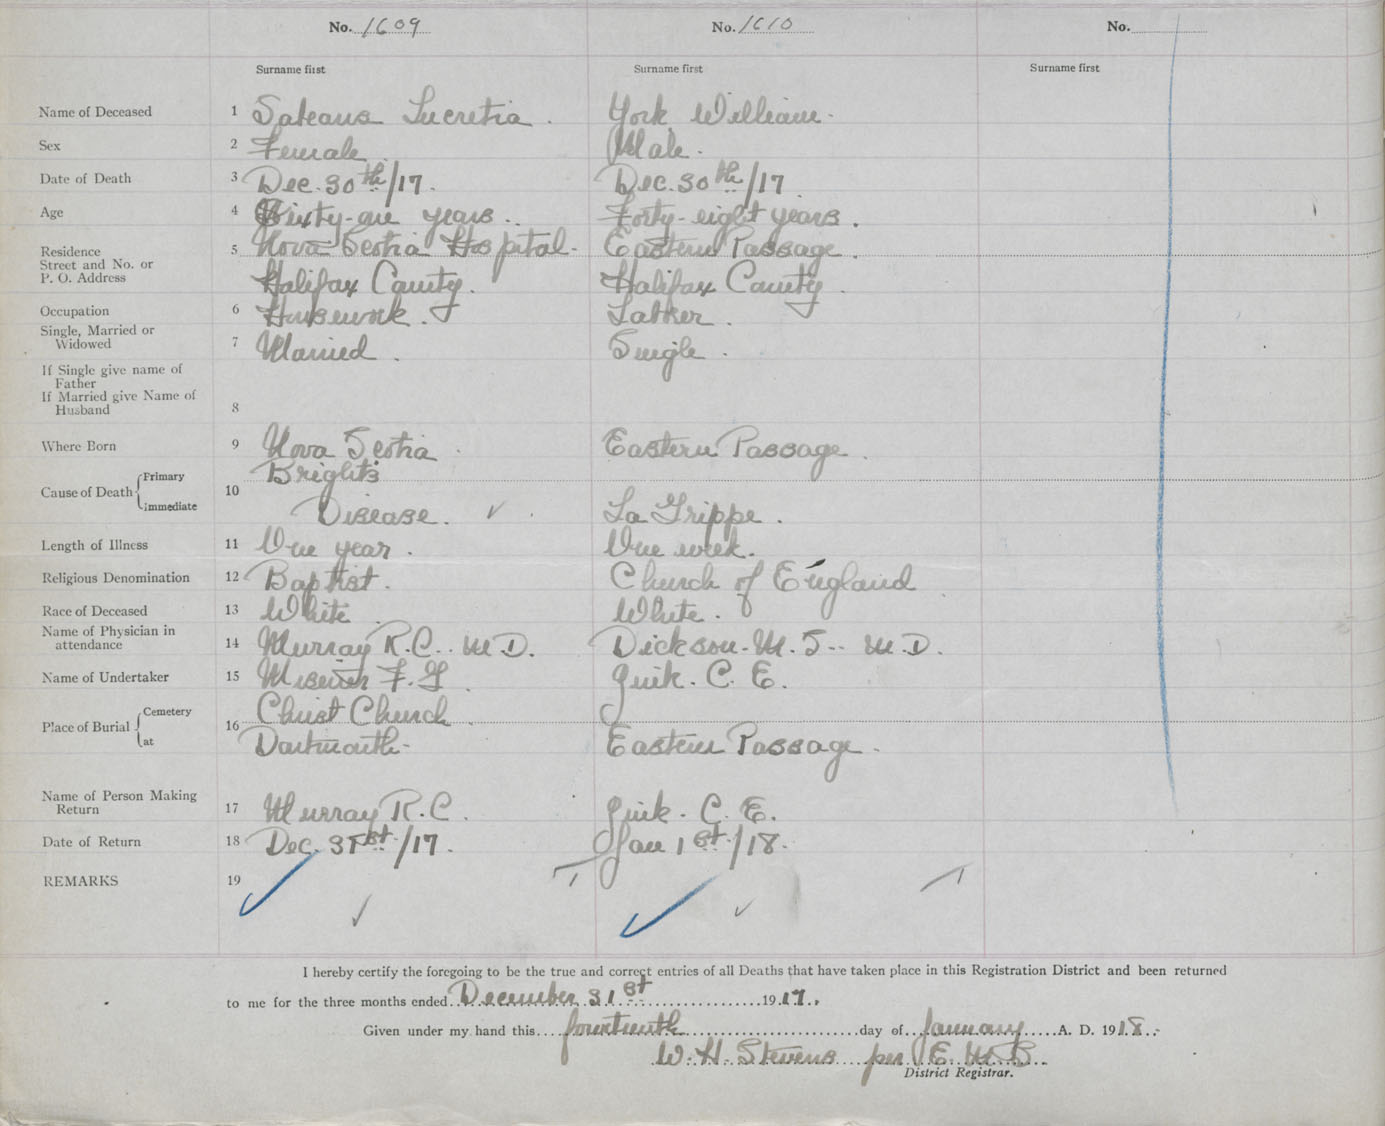 No. 1609 No. 1610 No.
Surname first Surname first Surname first
Name of Deceased 1 Sateaus Lucretia. York William.
Sex 2 Female Male.
Date of Death 3 Dec. 30th/17. Dec. 30th/17
Age 4 Sixty-one years.. Forty-eight years.
Residence 5 Nova Scotia Hospital. Eastern Passage.
Street and No. or
P. O. Address Halifax County. Halifax County.
Occupation 6 Housework. Laborer.
Single, Married or
Widowed 7 Married. Single.
If Single give name of
Father
If Married give Name of
Husband 8
Where Born 9 Nova Scotia. Eastern Passage.
Primary Bright's
Cause of Death 10
Immediate Disease. La Grippe.
Length of Illness 11 One year. One week.
Religious Denomination 12 Baptist. Church of England
Race of Deceased 13 White. White.
Name of Physician in
attendance 14 Murray R.C.. M.D. Dickson. M. S.. M.D.
Name of Undertaker 15 F. G. C. E.
Cemetery Christ Church
Place of Burial 16
at Dartmouth- Eastern Passage.
Name of Person Making
Return 17 Murray R.C. C. E.
Date of Return 18 Dec. 31st/17. Jan 1st/18.
REMARKS 19
I hereby certify the foregoing to be the true and correct entries of all Deaths that have taken place in this Registration District and been returned
to me for the three months ended December 31st 1917.
Given under my hand this fourteenth day of January A. D. 1918.
W. H. Stevens per E. M. B
District Registrar.